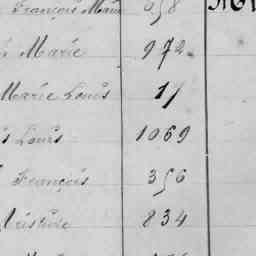 François Marie 658
Marie 972
Marie Louis 11
Louis 1069
François 356
Aristide 834